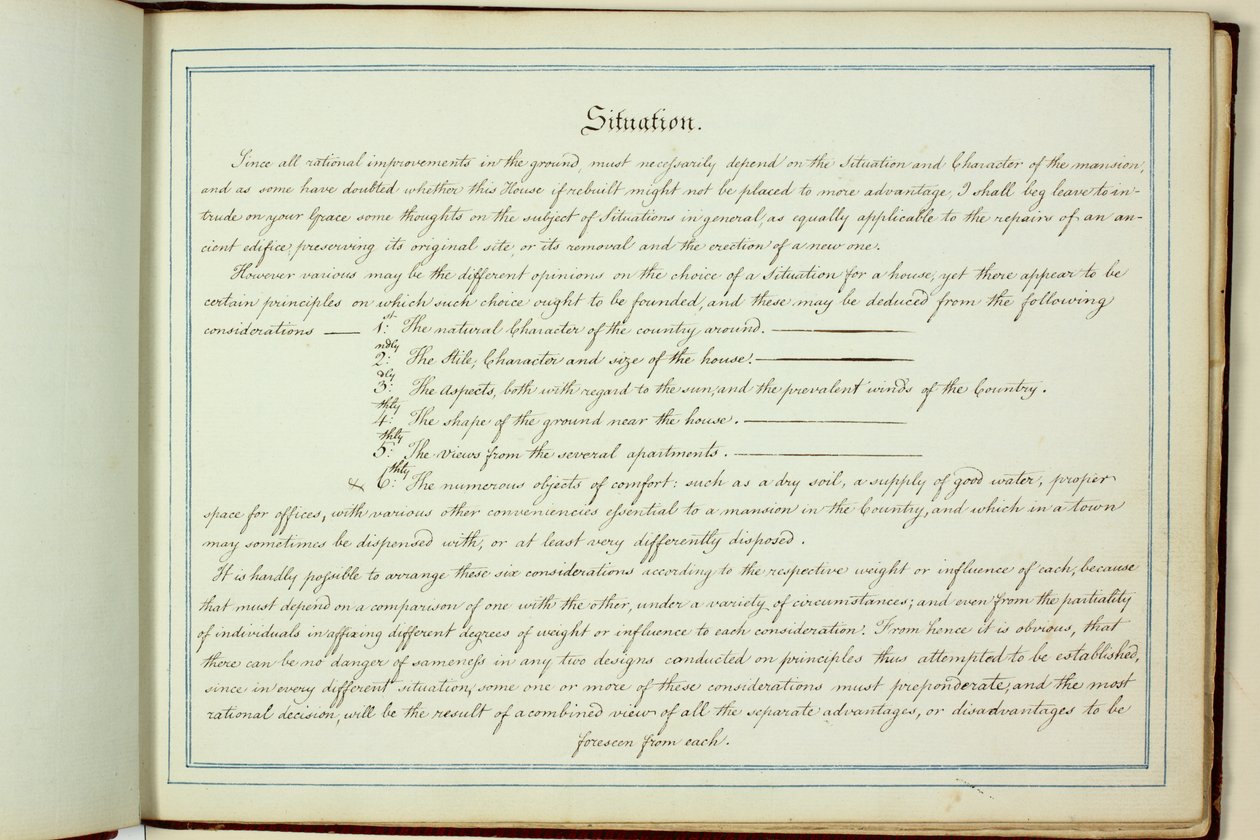 Situation.
Since all rational improvements in the ground, must necessarily depend on the Situation and Character of the mansion,
and as some have doubted whether this House if rebuilt might not be placed to more advantage, I shall beg leave to in-
trude on your Grace some thoughts on the subject of Situations in general, as equally applicable to the repairs of an an-
cient edifice, preserving its original site, or its removal and the erection of a new one.
However various may be the different opinions on the choice of a Situation for a house, yet there appear to be
certain principles on which such choice ought to be founded, and these may be deduced from the following
considerations — 1st: The natural Character of the country around. —
2ndly: The Stile, Character and size of the house. —
3dly: The Aspects, both with regard to the sun, and the prevalent winds of the Country.
4thly: The shape of the ground near the house. —
5thly: The views from the several apartments. —
x 6thly: The numerous objects of comfort: such as a dry soil, a supply of good water, proper
space for offices, with various other conveniencies essential to a mansion in the Country, and which in a town
may sometimes be dispensed with, or at least very differently disposed.
It is hardly possible to arrange these six considerations according to the respective weight or influence of each, because
that must depend on a comparison of one with the other, under a variety of circumstances; and even from the partiality
of individuals in affixing different degrees of weight or influence to each consideration. From hence it is obvious, that
there can be no danger of sameness in any two designs conducted on principles thus attempted to be established,
since in every different situation, some one or more of these considerations must preponderate, and the most
rational decision, will be the result of a combined view of all the separate advantages, or disadvantages to be
foreseen from each.